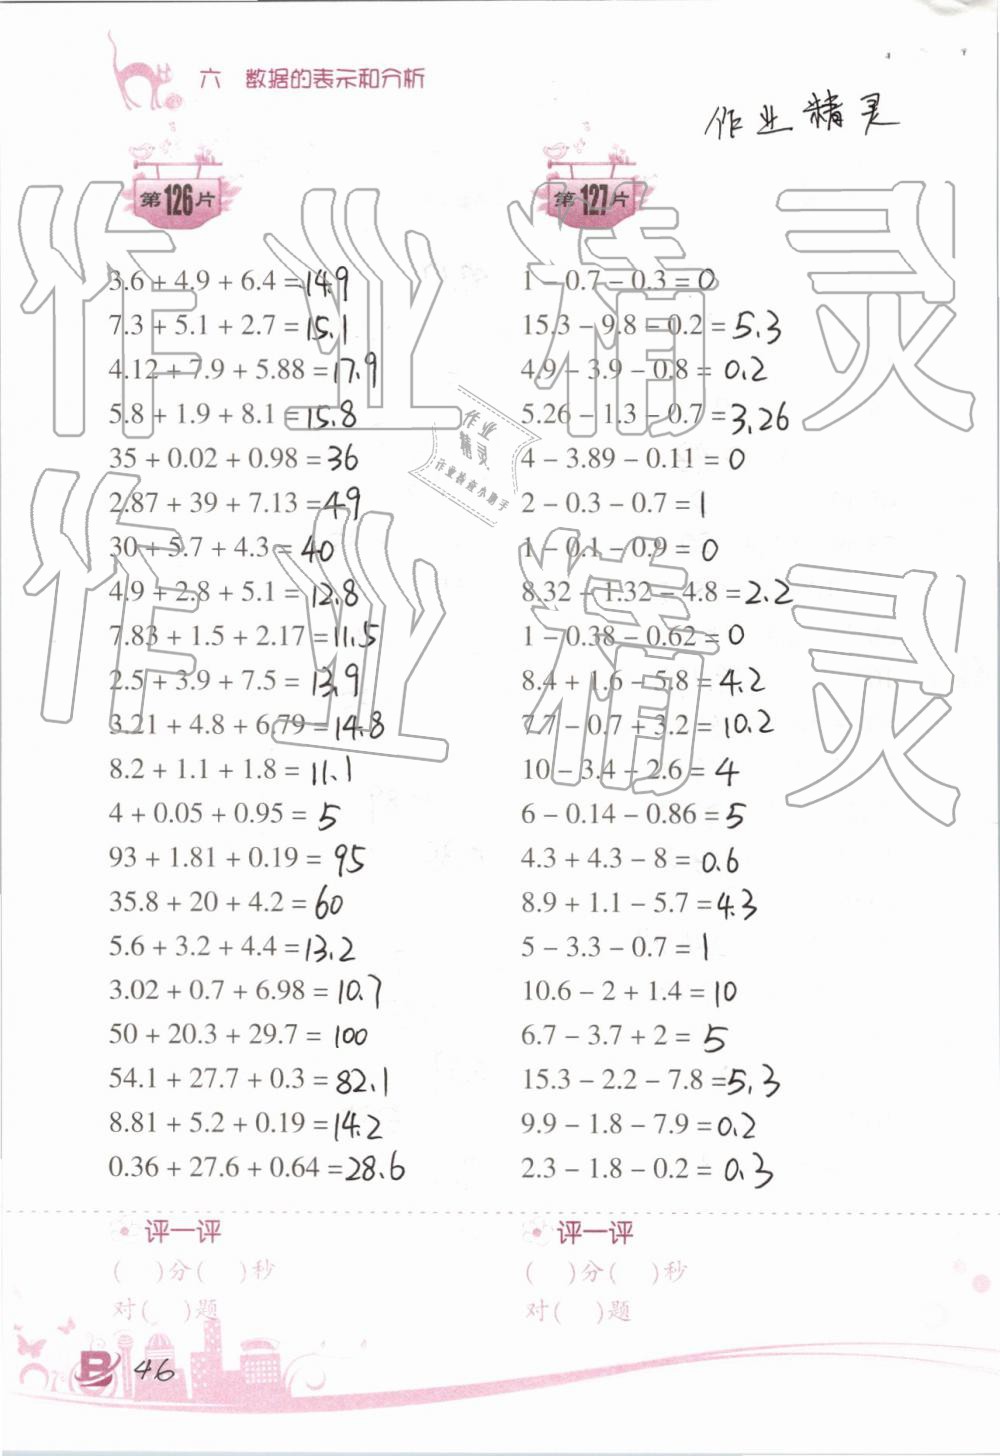 六 数据的表示和分析
作业精灵
第126片
3.6 + 4.9 + 6.4 = 14.9
7.3 + 5.1 + 2.7 = 15.1
4.12 + 7.9 + 5.88 = 17.9
5.8 + 1.9 + 8.1 = 15.8
35 + 0.02 + 0.98 = 36
2.87 + 39 + 7.13 = 49
30 + 5.7 + 4.3 = 40
4.9 + 2.8 + 5.1 = 12.8
7.83 + 1.5 + 2.17 = 11.5
2.5 + 3.9 + 7.5 = 13.9
3.21 + 4.8 + 6.79 = 14.8
8.2 + 1.1 + 1.8 = 11.1
4 + 0.05 + 0.95 = 5
93 + 1.81 + 0.19 = 95
35.8 + 20 + 4.2 = 60
5.6 + 3.2 + 4.4 = 13.2
3.02 + 0.7 + 6.98 = 10.7
50 + 20.3 + 29.7 = 100
54.1 + 27.7 + 0.3 = 82.1
8.81 + 5.2 + 0.19 = 14.2
0.36 + 27.6 + 0.64 = 28.6
评一评
( )分( )秒
对( )题
第127片
1 − 0.7 − 0.3 = 0
15.3 − 9.8 − 0.2 = 5.3
4.9 − 3.9 − 0.8 = 0.2
5.26 − 1.3 − 0.7 = 3.26
4 − 3.89 − 0.11 = 0
2 − 0.3 − 0.7 = 1
1 − 0.1 − 0.9 = 0
8.32 − 1.32 − 4.8 = 2.2
1 − 0.38 − 0.62 = 0
8.4 + 1.6 − 5.8 = 4.2
7.7 − 0.7 + 3.2 = 10.2
10 − 3.4 − 2.6 = 4
6 − 0.14 − 0.86 = 5
4.3 + 4.3 − 8 = 0.6
8.9 + 1.1 − 5.7 = 4.3
5 − 3.3 − 0.7 = 1
10.6 − 2 + 1.4 = 10
6.7 − 3.7 + 2 = 5
15.3 − 2.2 − 7.8 = 5.3
9.9 − 1.8 − 7.9 = 0.2
2.3 − 1.8 − 0.2 = 0.3
评一评
( )分( )秒
对( )题
作业精灵
作业精灵
作业
精灵
作业检查小助手
B 46